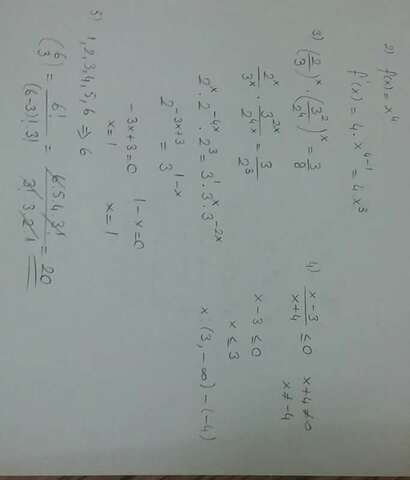 2) f(x)=x⁴
f'(x)=4·x⁴⁻¹=4x³
3) (2/3)ˣ · (3²/2⁴)ˣ = 3/8
2ˣ/3ˣ · 3²ˣ/2⁴ˣ = 3/2³
2ˣ · 2⁻⁴ˣ · 2³ = 3¹ · 3ˣ · 3⁻²ˣ
2⁻³ˣ⁺³ = 3¹⁻ˣ
-3x+3=0 1-x=0
x=1 x=1
4) (x-3)/(x+4) ≤0 x+4≠0
x≠-4
x-3≤0
x≤3
x:(3,-∞)-(-4)
5) 1,2,3,4,5,6 ⇒ 6
(6 3) = 6!/((6-3)!·3!) = 6·5·4·3!/(3!·3·2·1) = 20